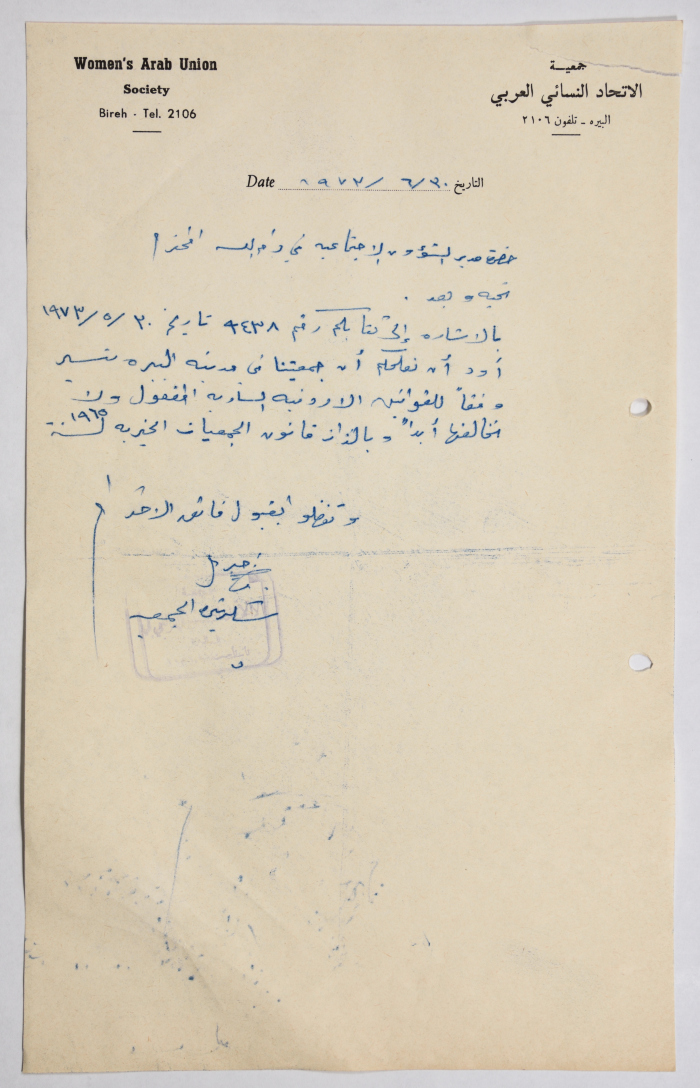 Women's Arab Union
Society
Bireh - Tel. 2106
جمعيـــة
الاتحاد النسائي العربي
البيره ــ تلفون ٢١٠٦
Date ١٩٧٣/ ٦/٣٠ التاريخ
حضرة مدير الشؤون الاجتماعيه في رام الله المحترم
تحيه وبعد .
بالاشاره إلى كتابكم رقم ٩٤٣٨ تاريخ ٣٠ /٥/ ١٩٧٣
أود أن نعلمكم أن جمعيتنا في مدينه البيره تسير
وفقاً للقوانين الاردنيه الساريه المفعول ولا
تخالفها أبداً وبالذات قانون الجمعيات الخيريه لسنة ١٩٦٥
وتفضلوا بقبول فائق الاحترام
الجمعيه